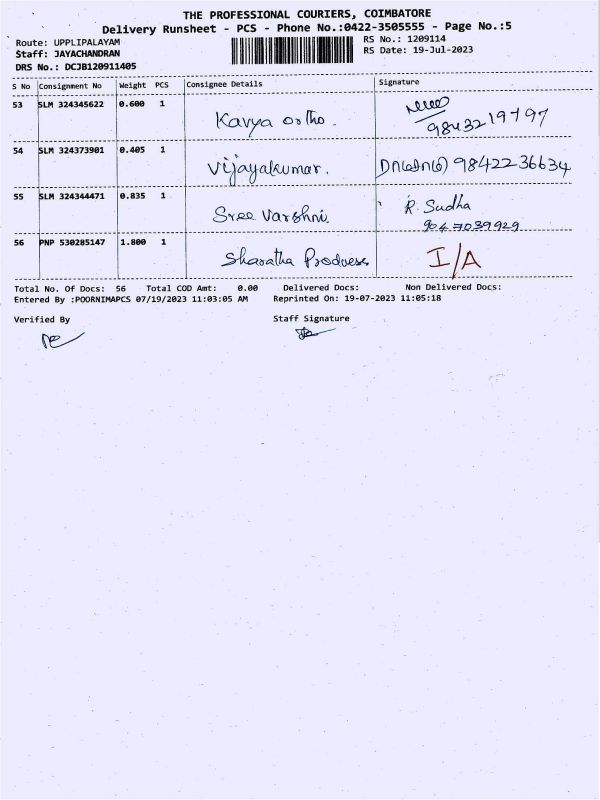 THE PROFESSIONAL COURIERS, COIMBATORE
Delivery Runsheet - PCS - Phone No.:0422-3505555 - Page No.:5
Route: UPPLIPALAYAM RS No.: 1209114
Staff: JAYACHANDRAN RS Date: 19-Jul-2023
DRS No.: DCJB120911405
S No Consignment No Weight PCS Consignee Details Signature
53 SLM 324345622 0.600 1 Kavya ortho.
9843219797
54 SLM 324373901 0.405 1 Vijayakumar. 9842236634
55 SLM 324344471 0.835 1 Sree Varshni. R. Sudha
9047039929
56 PNP 530285147 1.800 1 Sharatha I/A
Total No. Of Docs: 56 Total COD Amt: 0.00 Delivered Docs: Non Delivered Docs:
Entered By :POORNIMAPCS 07/19/2023 11:03:05 AM Reprinted On: 19-07-2023 11:05:18
Verified By Staff Signature